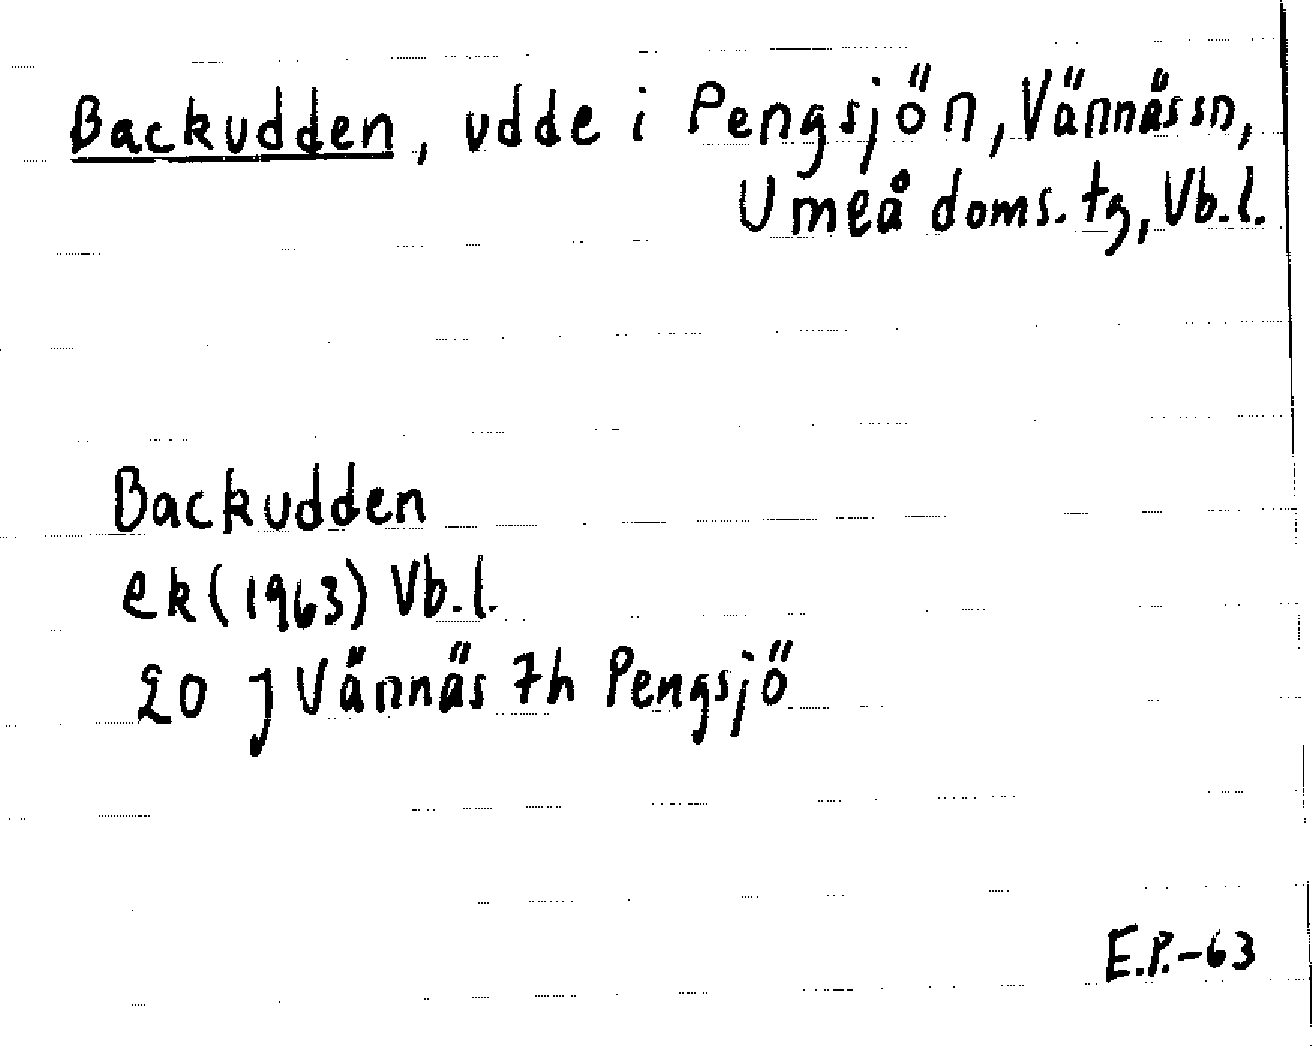 Backudden, udde i Pengsjön, Vännäs sn,
Umeå doms. tg, Vb. l.
Backudden
ek (1963) Vb. l.
20 J Vännäs 7h Pengsjö
E.P.-63